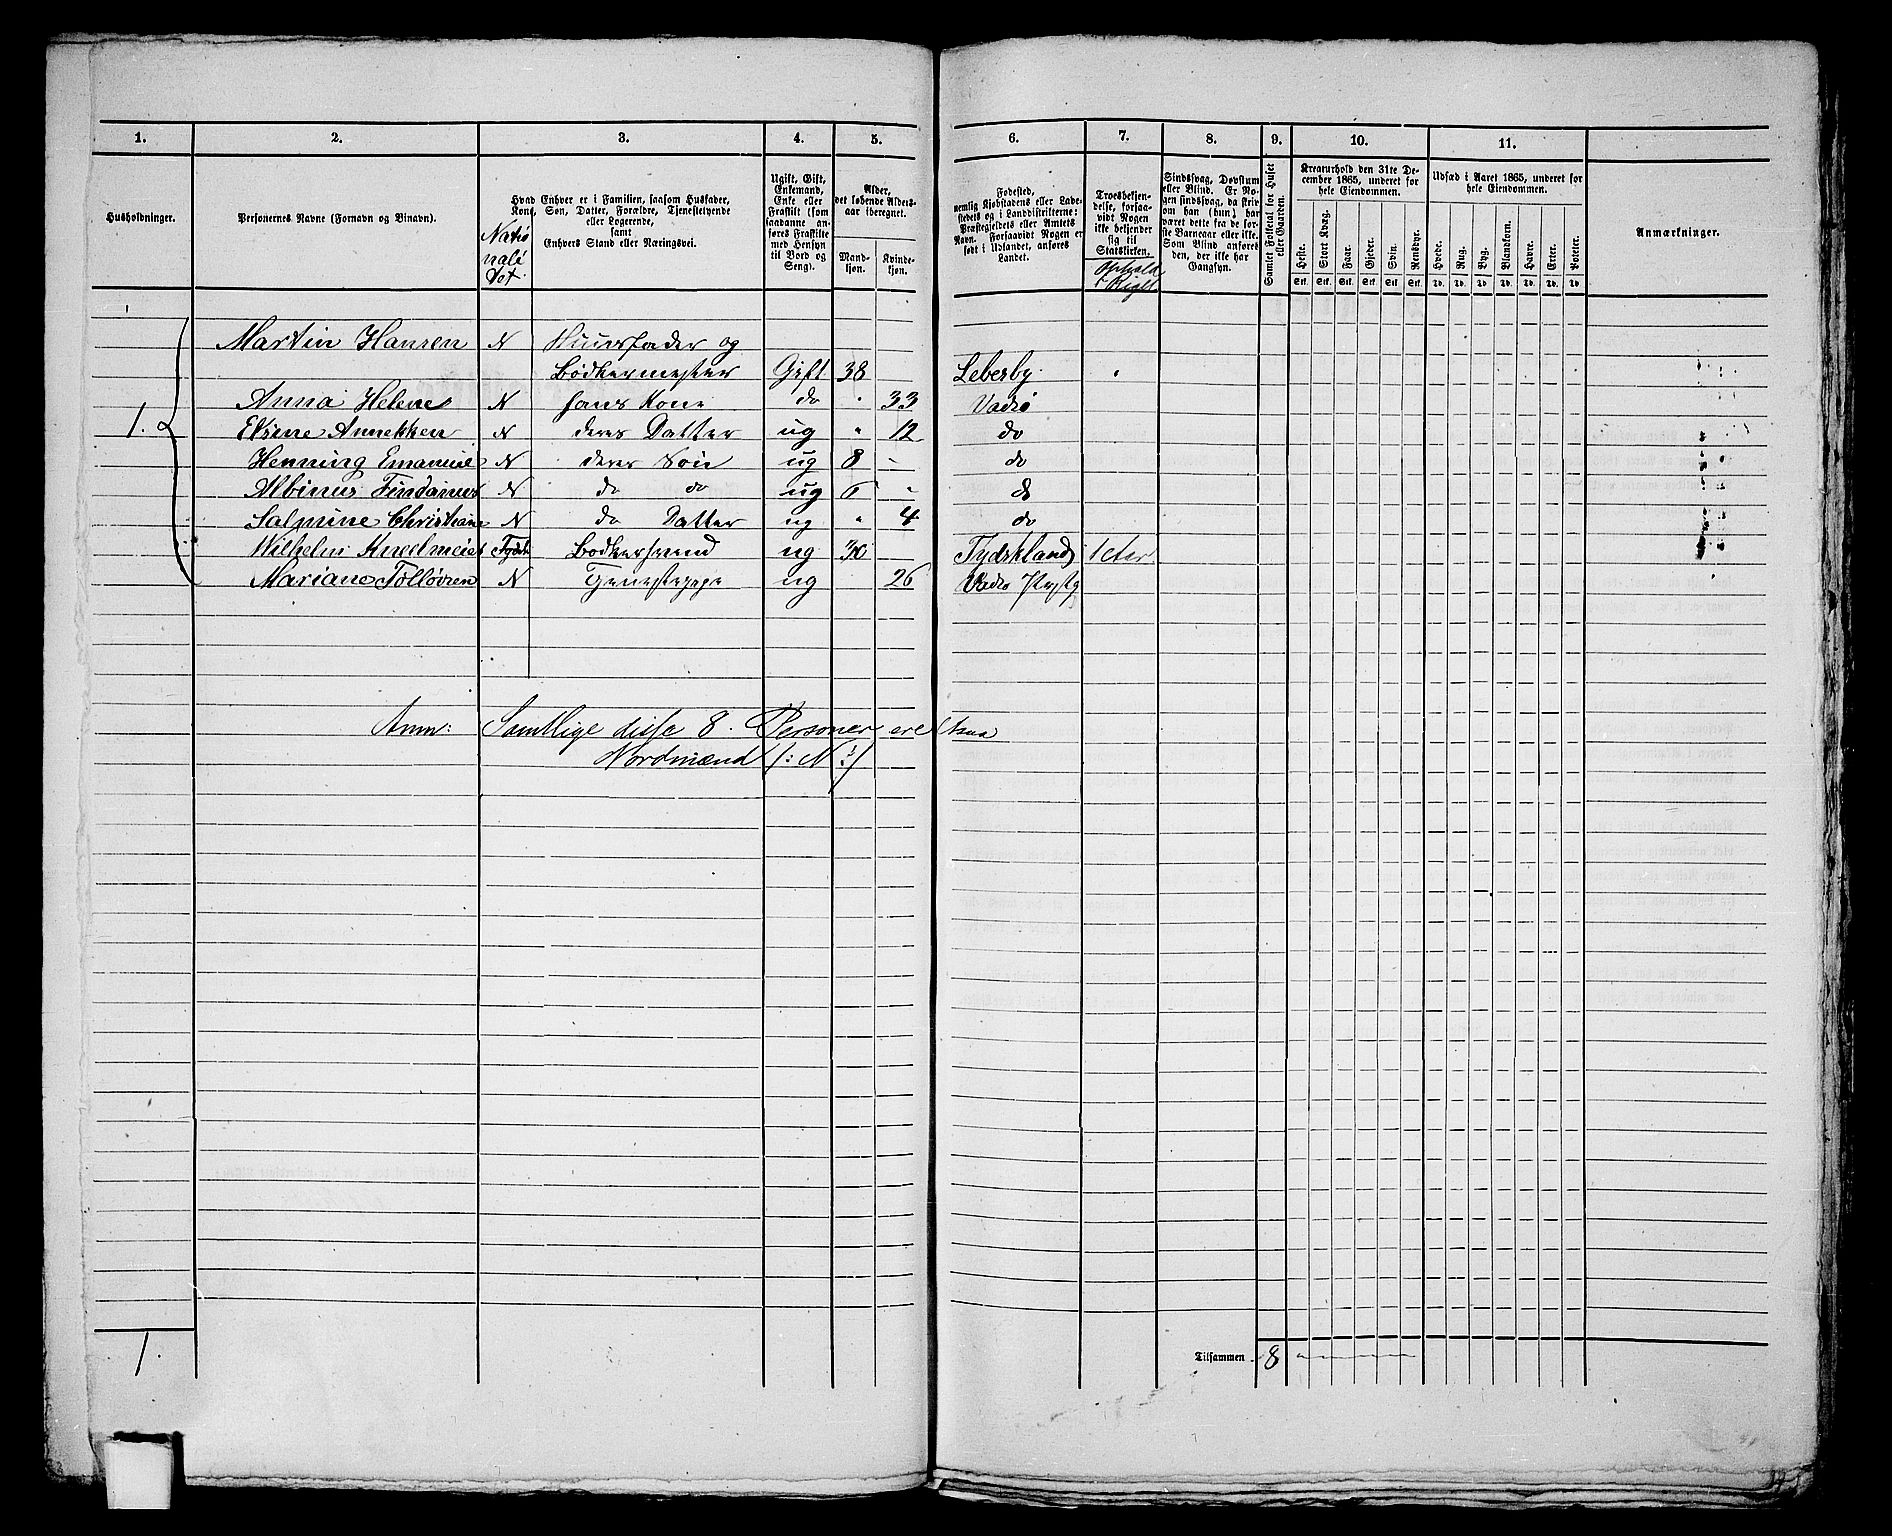 1. 2. 3. 4. 5. 6. 7. 8. 9. 10. 11.
Husholdninger.
Personernes Navne (Fornavn og Binavn).
Hvad Enhver er i Familien, saasom Husfader,
Kone, Søn, Datter, Forældre, Tjenestetyende
eller Logerende,
samt
Enhvers Stand eller Næringsvei.
Natio
nali
tet.
Ugift, Gift,
Enkemand,
Enke eller
Fraskilt (som
saadanne an-
føres Fraskilte
med Hensyn
til Bord og
Seng).
Alder,
det løbende Alders-
aar iberegnet.
Mand-
kjøn.
Kvinde-
kjøn.
Fødested,
nemlig Kjøbstadens eller Lade-
stedets og i Landdistrikterne:
Præstegjeldets eller Amtets
Navn. Forsaavidt Nogen er
født i Udlandet, anføres
Landet.
Troesbekjen-
delse, forsaa-
vidt Nogen
ikke bekjender
sig til
Statskirken.
Ophold
i Riget
Sindssvag, Døvstum
eller Blind. Er No-
gen sindssvag, da skriv
om han (hun) har
været dette fra de før-
ste Barneaar eller ikke.
Som Blind anføres
den, der ikke har
Gangsyn.
Samlet Folketal for Huset
eller Gaarden.
Kreaturhold den 31te De-
cember 1865, underet for
hele Eiendommen.
Heste. Stort Kvæg. Faar. Gjeder. Svin. Rensdyr.
Stk. Stk. Stk. Stk. Stk. Stk.
Udsæd i Aaret 1865, underet for
hele Eiendommen.
Hvede. Rug. Byg. Blandkorn. Havre. Erter. Poteter.
Td. Td. Td. Td. Td. Td. Td.
Anmærkninger.
Martin Hansen N Huusfader og
Bødkermester Gift 38 Leberby
1. Anna Helene N hans Kone do " 33 Vadsø
Elsine Annekken N deres Datter ug " 12 do
Henning Emanuel N deres Søn ug 8 - do
Albinus Findanus N do do ug 6 - do
Salmine Christiane N do Datter ug " 4 do
Wilhelm Tydsk Bødkersvend ug 30 - Tydskland 1 Aar
Mariane N Tjenestepige ug 26 Vadsø
Anm: Samtlige disse 8. Personer ere
Nordmænd (: N :)
1.
Tilsammen 8